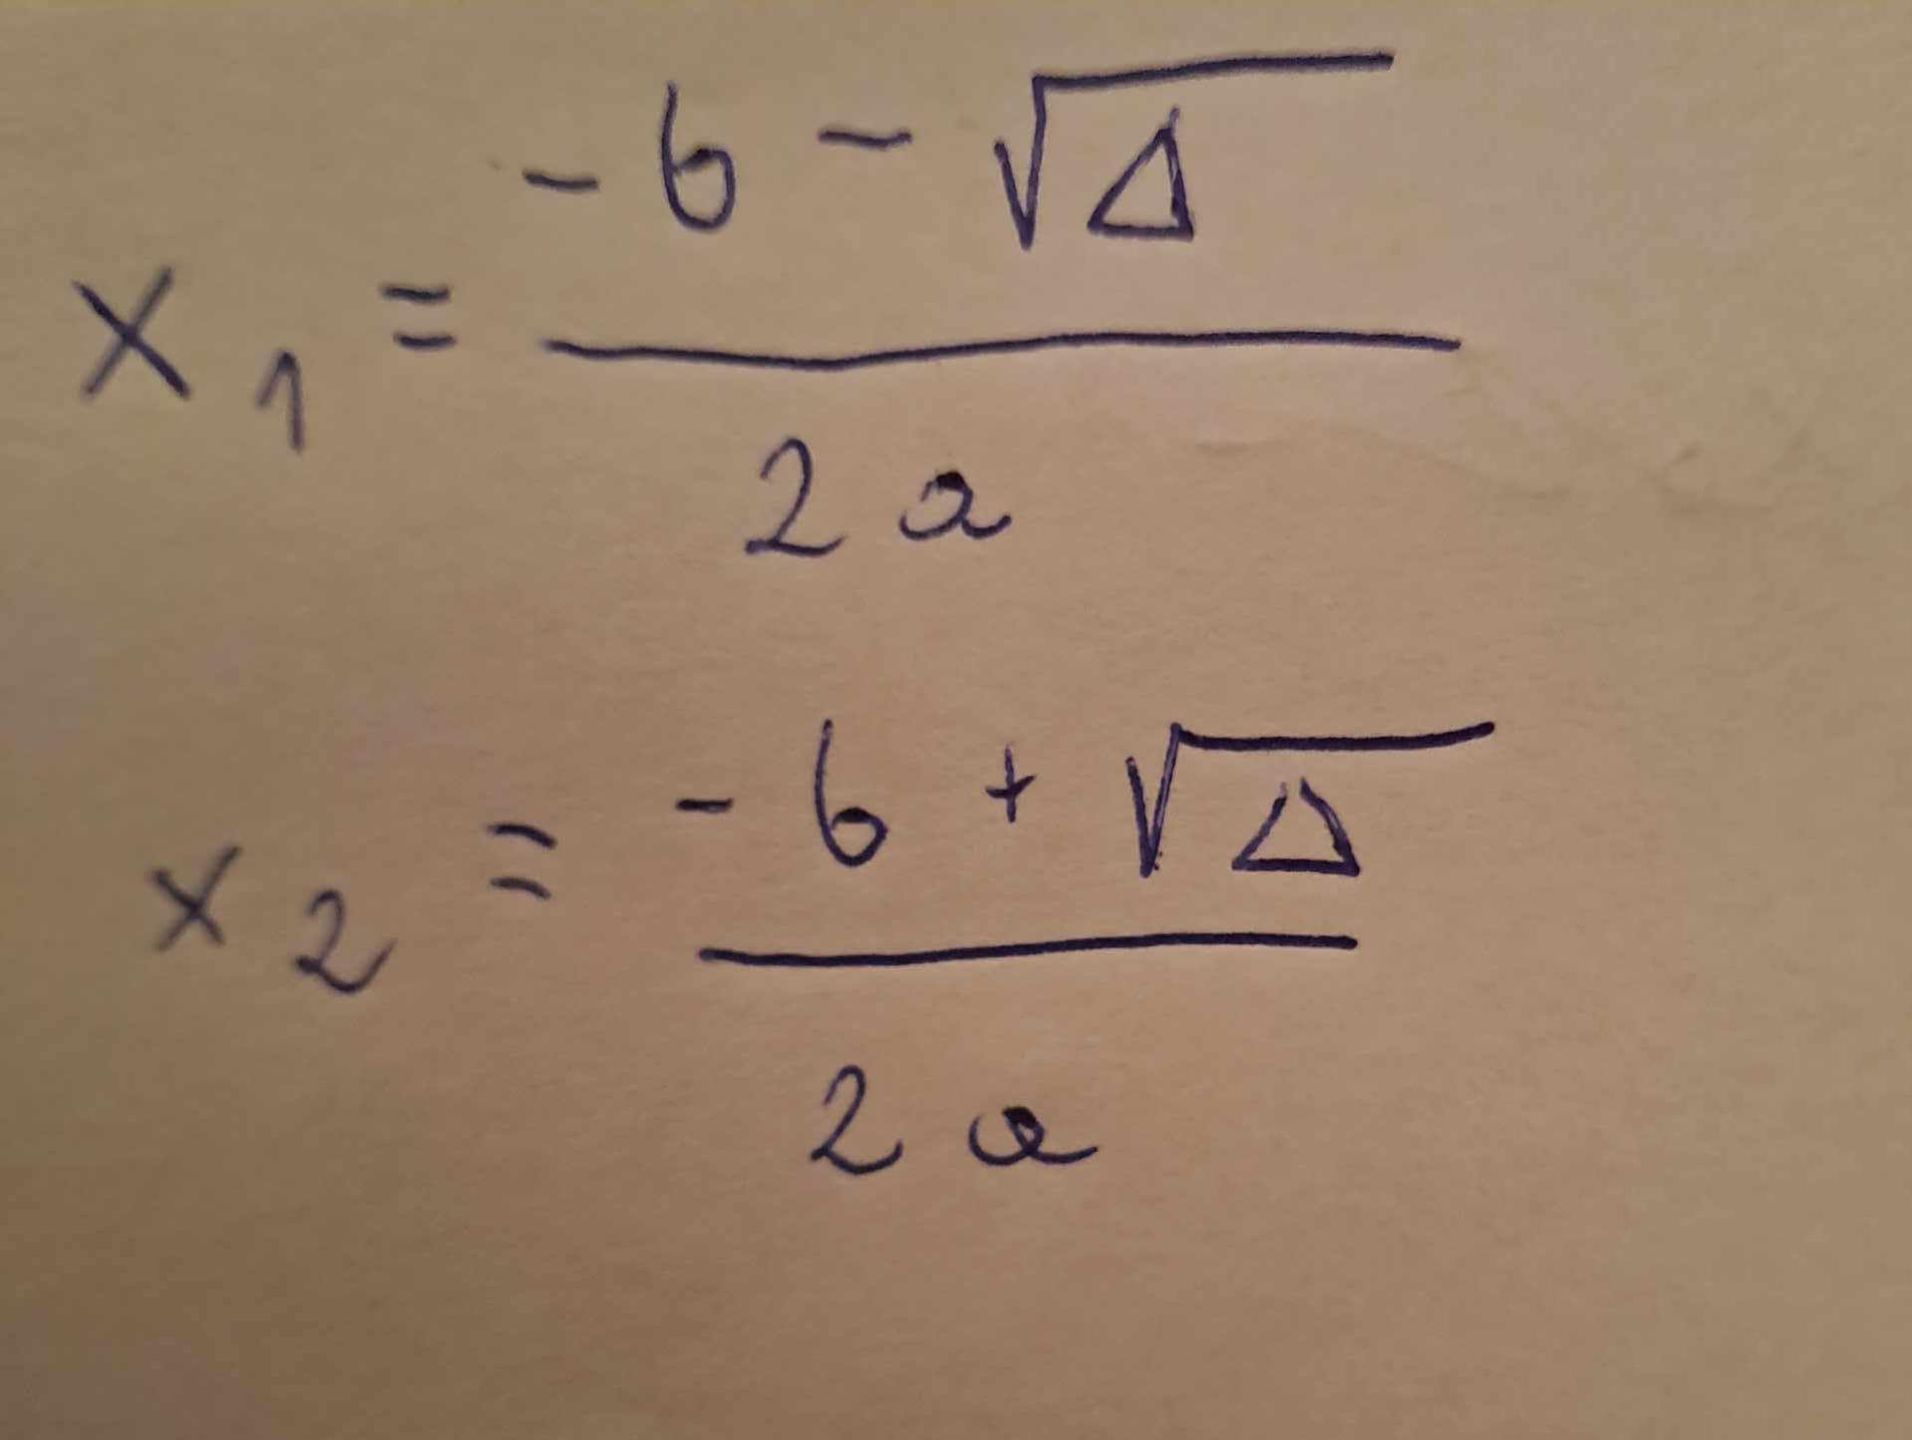 x₁ = (-b - √Δ) / 2a
x₂ = (-b + √Δ) / 2a